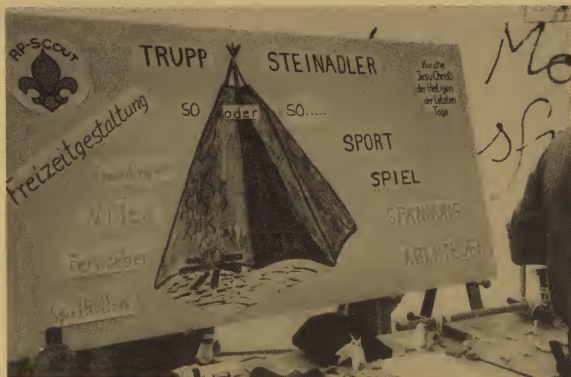 TRUPP STEINADLER
Kirche
Jesu Christi
der Heiligen
der Letzten
Tage
Freizeitgestaltung
SO oder SO.....
SPORT
SPIEL
SPANNUNG
ABENTEUER
Fernseher
Spielhallen